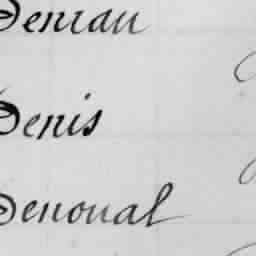 Deniau
Denis
Denoual